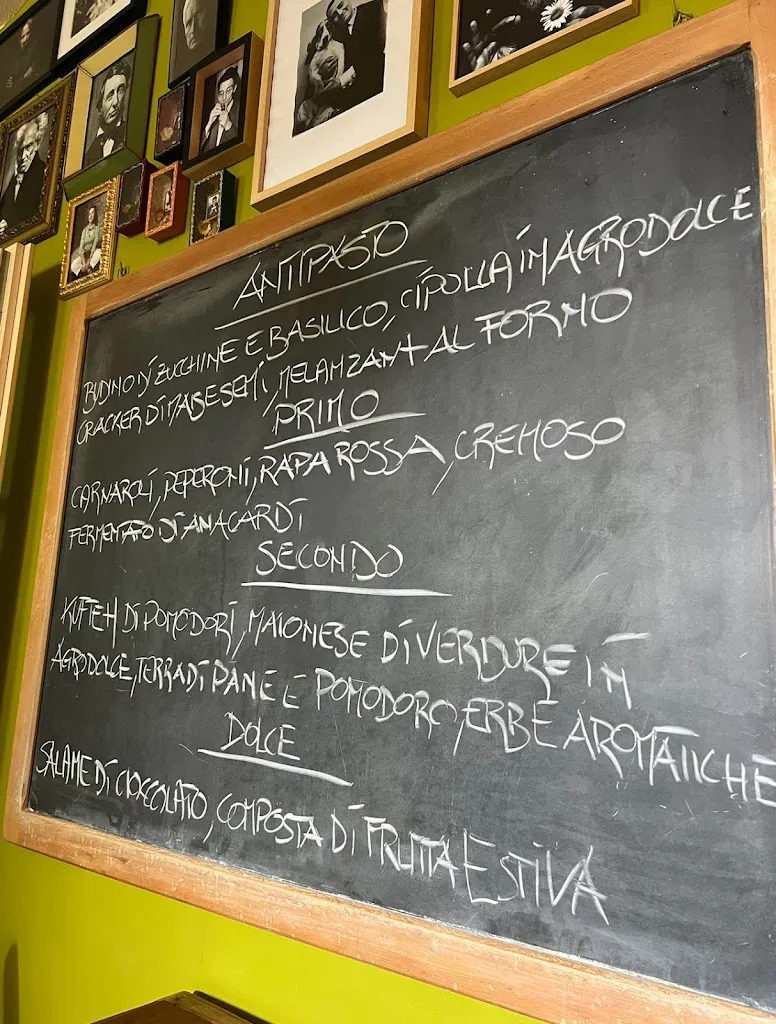 ANTIPASTO
BUDINO DI ZUCCHINE E BASILICO, CIPOLLA IN AGRODOLCE
CRACKER DI MAIS E SEMI, MELANZANA AL FORNO
PRIMO
CARNAROLI, PEPERONI, RAPA ROSSA, CREMOSO
FERMENTATO DI ANACARDI
SECONDO
KUFTEH DI POMODORI, MAIONESE DI VERDURE IN
AGRODOLCE, TERRA DI PANE E POMODORO, ERBE AROMATICHE
DOLCE
SALAME DI CIOCCOLATO, COMPOSTA DI FRUTTA ESTIVA